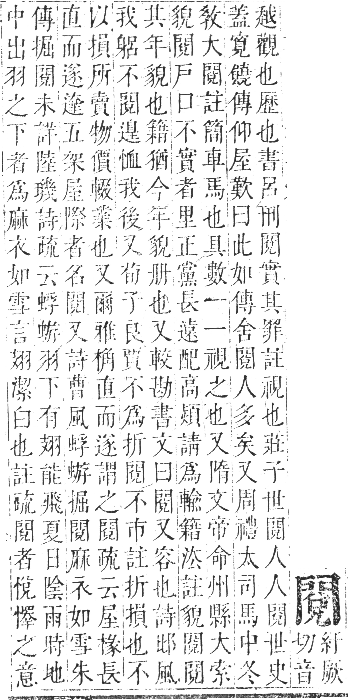 閱
紅厥
切音
越觀也歷也書呂刑閱實其罪註視也莊子世閱人人閱世史
蓋寬饒傳仰屋歎曰此如傳舍閱人多矣又周禮大司馬中冬
敎大閱註簡車馬也具數一一視之也又隋文帝命州縣大索
貌閱戶口不實者里正黨長遠配高熲請爲輸籍㳒註貌閱閱
其年貌也籍猶今年貌册也又較勘書文曰閱又容也詩邶風
我躬不閱遑恤我後又荀子良賈不爲折閱不市註折損也不
以損所賣物價輟業也又爾雅桷直而遂謂之閱疏云屋椽長
直而遂達五架屋際者名閱又詩曹風蜉蝣掘閱麻衣如雪朱
傳掘閱未詳陸璣詩疏云蜉蝣羽下有翅能飛夏日陰雨時地
中出羽之下者爲麻衣如雪言翅潔白也註疏閱者悅懌之意